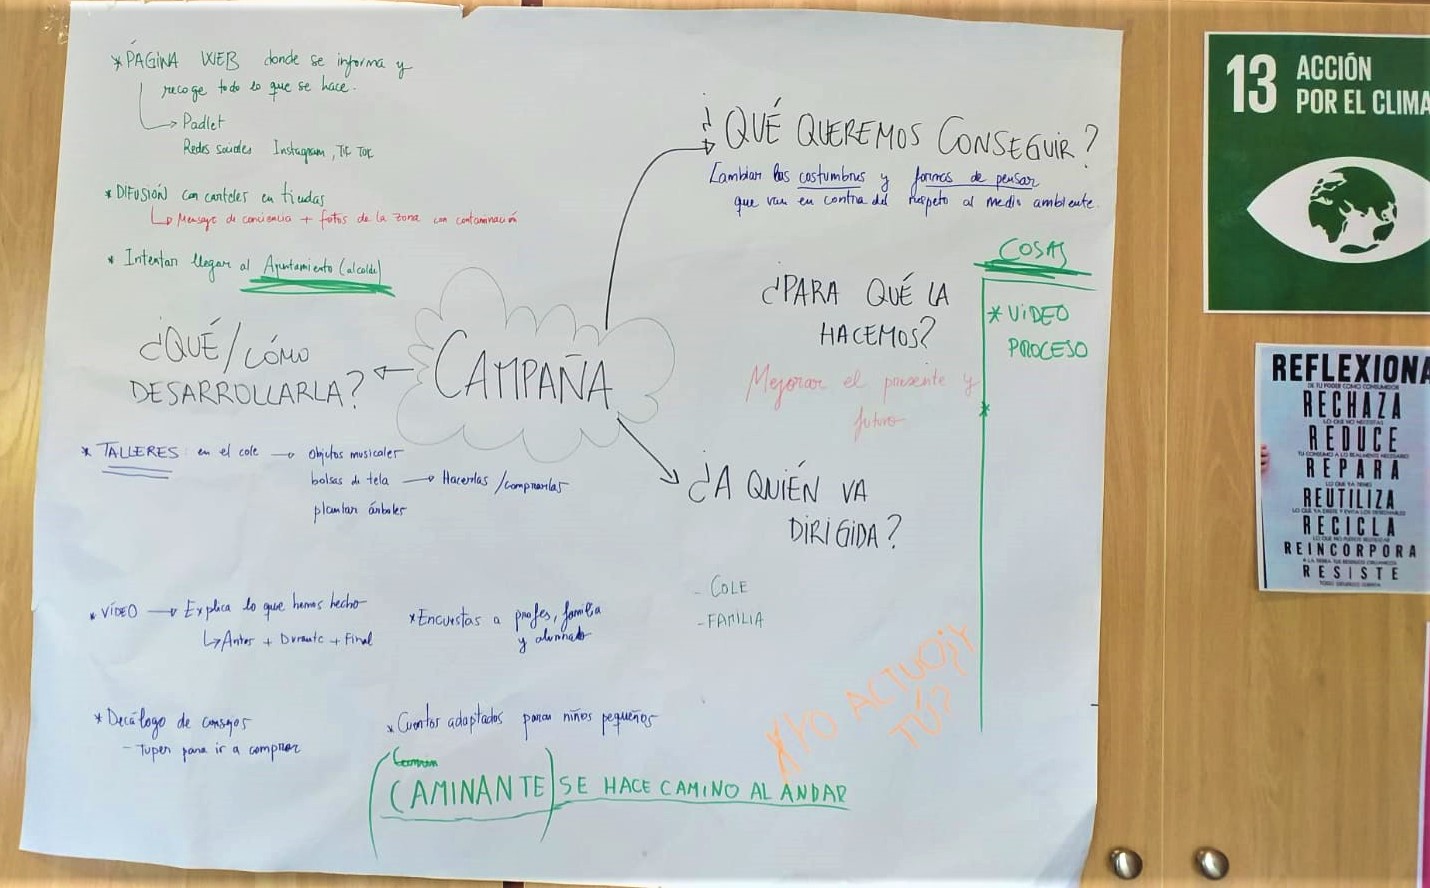 * PÁGINA WEB donde se informa y
recoge todo lo que se hace.
→ Padlet
Redes sociales Instagram, Tik Tok
* DIFUSIÓN con carteles en tiendas
↳ Mensaje de conciencia + fotos de la zona con contaminación
* Intentar llegar al Ayuntamiento (alcalde)
¿QUÉ/CÓMO
DESARROLLARLA?
CAMPAÑA
* TALLERES en el cole → objetos musicales
bolsas de tela → Hacerlas/comprarlas
plantar árboles
* VÍDEO → Explica lo que hemos hecho
↳ Antes + Durante + Final
* Encuestas a profes, familia
y alumnado
* Decálogo de consejos
- Tuper para ir a comprar
* Cuentos adaptados para niños pequeños
(CAMINANTE) SE HACE CAMINO AL ANDAR
¿QUÉ QUEREMOS CONSEGUIR?
Cambiar las costumbres y formas de pensar
que van en contra del respeto al medio ambiente.
¿PARA QUÉ LA
HACEMOS?
Mejorar el presente y
futuro
¿A QUIÉN VA
DIRIGIDA?
- COLE
- FAMILIA
YO ACTUO ¿Y
TÚ?
COSAS
* VIDEO
PROCESO
*
13 ACCIÓN
POR EL CLIMA
REFLEXIONA
DE TU PODER COMO CONSUMIDOR
RECHAZA
LO QUE NO NECESITAS
REDUCE
TU CONSUMO A LO REALMENTE NECESARIO
REPARA
LO QUE YA TIENES
REUTILIZA
RECICLA
LO QUE NO PUEDES REUTILIZAR
REINCORPORA
A LA TIERRA TUS RESIDUOS ORGÁNICOS
RESISTE